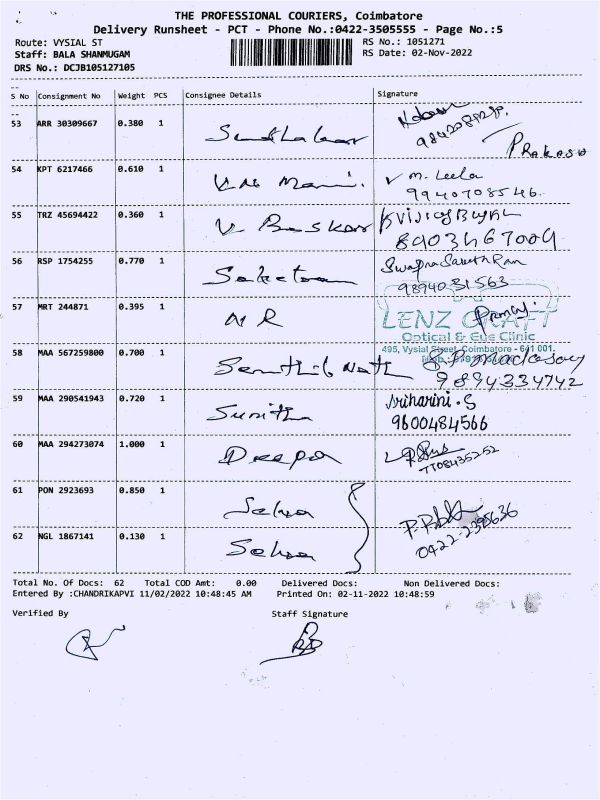 THE PROFESSIONAL COURIERS, Coimbatore
Delivery Runsheet - PCT - Phone No.:0422-3505555 - Page No.:5
Route: VYSIAL ST
RS No.: 1051271
Staff: BALA SHANMUGAM
RS Date: 02-Nov-2022
DRS No.: DCJB105127105
S No Consignment No Weight PCS Consignee Details Signature
53 ARR 30309667 0.380 1 Sudhakar
PRAKASH
54 KPT 6217466 0.610 1 Mani. M. Leela
9940708546
55 TRZ 45694422 0.360 1 V Baskar
8903467009
56 RSP 1754255 0.770 1
9894031563
57 MRT 244871 0.395 1
LENZ CRAFT
Optical & Eye Clinic
495, Vysial Street, Coimbatore - 641 001.
58 MAA 567259800 0.700 1 Senthil Nath
9894334742
59 MAA 290541943 0.720 1 Sunitha sriharini.S
9600484566
60 MAA 294273074 1.000 1 Deepa
61 PON 2923693 0.850 1 Selva
62 NGL 1867141 0.130 1 Selva
Total No. Of Docs: 62 Total COD Amt: 0.00 Delivered Docs: Non Delivered Docs:
Entered By :CHANDRIKAPVI 11/02/2022 10:48:45 AM Printed On: 02-11-2022 10:48:59
Verified By Staff Signature